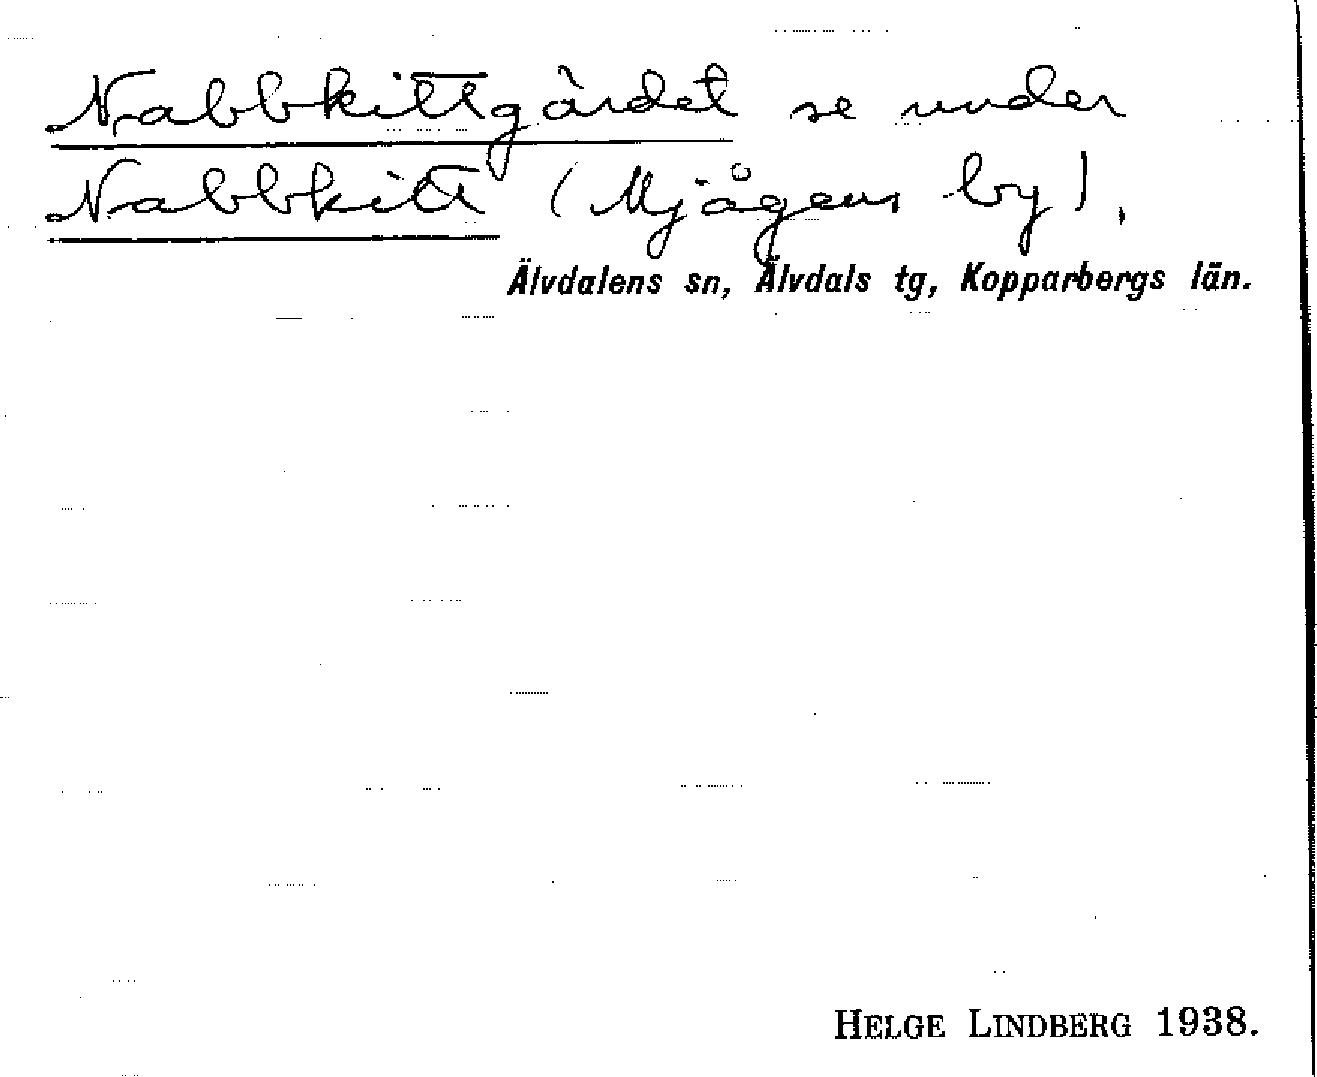 Nabbkittgärdet se under
Nabbkitt (Mjågens by).
Älvdalens sn, Älvdals tg, Kopparbergs län.
HELGE LINDBERG 1938.